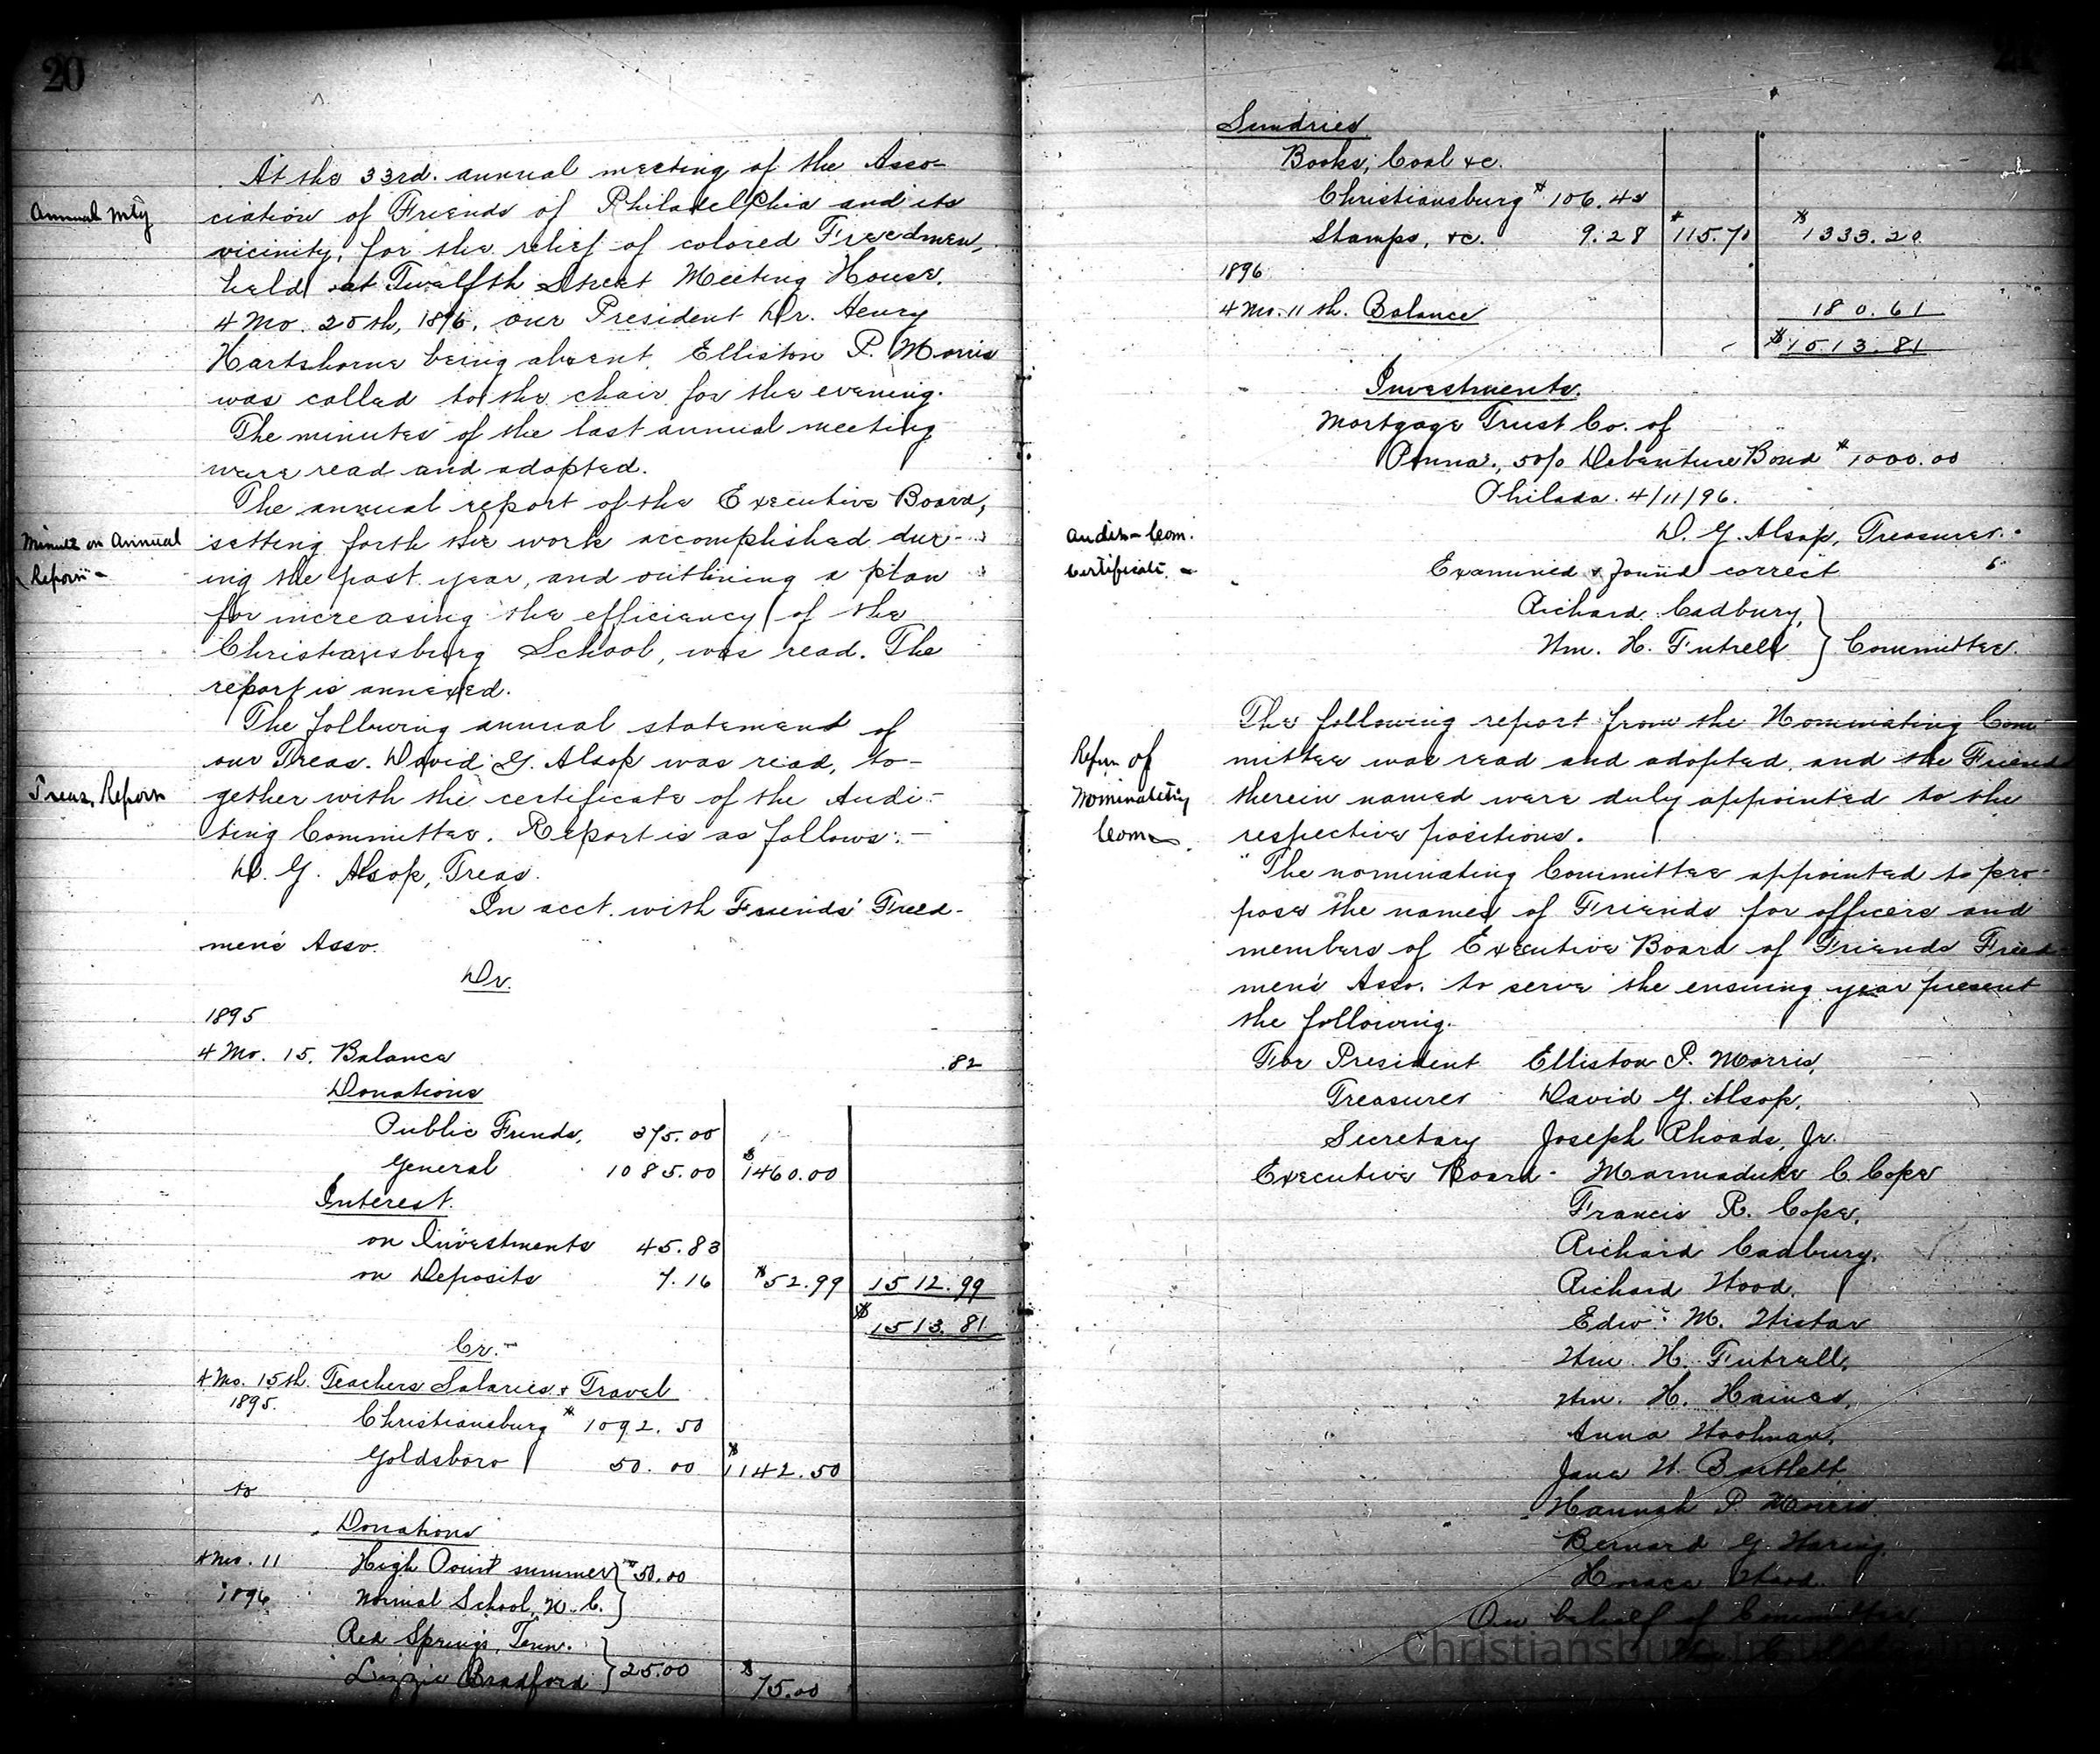 20
At the 33rd. annual meeting of the Asso-
Annual Mtg
ciation of Friends of Philadelphia and its
vicinity, for the relief of colored Freedmen,
held at Twelfth Street Meeting House,
4 Mo. 20th, 1896, our President Dr. Henry
Hartshorne being absent, Elliston P. Morris
was called to the chair for the evening.
The minutes of the last annual meeting
were read and adopted.
The annual report of the Executive Board,
Minute on Annual
Report -
setting forth the work accomplished dur-
ing the past year, and outlining a plan
for increasing the efficiency of the
Christiansburg School, was read. The
report is annexed.
The following annual statement of
our Treas. David G. Alsop was read, to-
Treas. Report
gether with the certificate of the Audi-
ting Committee. Report is as follows:-
D. G. Alsop, Treas.
In acct. with Friends' Freed-
men's Asso.
Dr.
1895
4 Mo. 15. Balance .82
Donations
Public Funds, 375.00
General 1085.00 $1460.00
Interest.
on Investments 45.83
on Deposits 7.16 $52.99 1512.99
$1513.81
Cr.-
4 Mo. 15th. Teachers Salaries & Travel
1895.
Christiansburg $1092.50
Goldsboro 50.00 $1142.50
to
Donations
4 Mo. 11 High Point summer } $50.00
1896 Normal School, N. C. }
Red Springs, Tenn. }
Lizzie Bradford } 25.00 $75.00
Sundries
Books, Coal &c.
Christiansburg $106.42
Stamps, &c. 9.28 $115.70 $1333.20
1896
4 Mo. 11th. Balance 180.61
$1513.81
Investments.
Mortgage Trust Co. of
Penna., 5% Debenture Bond $1000.00
Philada. 4/11/96.
D. G. Alsop, Treasurer.
Auditn. Com.
Certificate. -
Examined & found correct
Richard Cadbury, }
Wm. H. Futrell } Committee.
The following report from the Nominating Com
Report of
Nominating
Com
mittee was read and adopted, and the Friends
therein named were duly appointed to the
respective positions.
"The nominating Committee appointed to pro-
pose the names of Friends for officers and
members of Executive Board of Friends Freed-
men's Asso. to serve the ensuing year present
the following.
For President Elliston P. Morris,
Treasurer David G. Alsop,
Secretary Joseph Rhoads, Jr.
Executive Board- Marmaduke C. Cope
Francis R. Cope,
Richard Cadbury,
Richard Wood,
Edw. M. Wistar
Wm. H. Futrell,
Wm. H. Haines,
Anna Woolman,
Jane W. Bartlett
Hannah P. Morris
Bernard G. Waring,
Horace Wood.
On behalf of Committee,
Christiansburg Institute